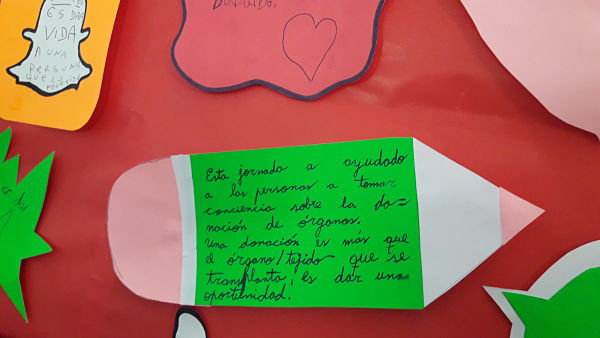 ES DAR
VIDA
A UNA
PERSONA
QUE
DONANDO.
es du
Esta jornada a ayudado
a las personas a tomar
conciencia sobre la do=
nación de órganos.
Una donación es más que
el órgano/tejido que se
transplanta, es dar una
oportunidad.